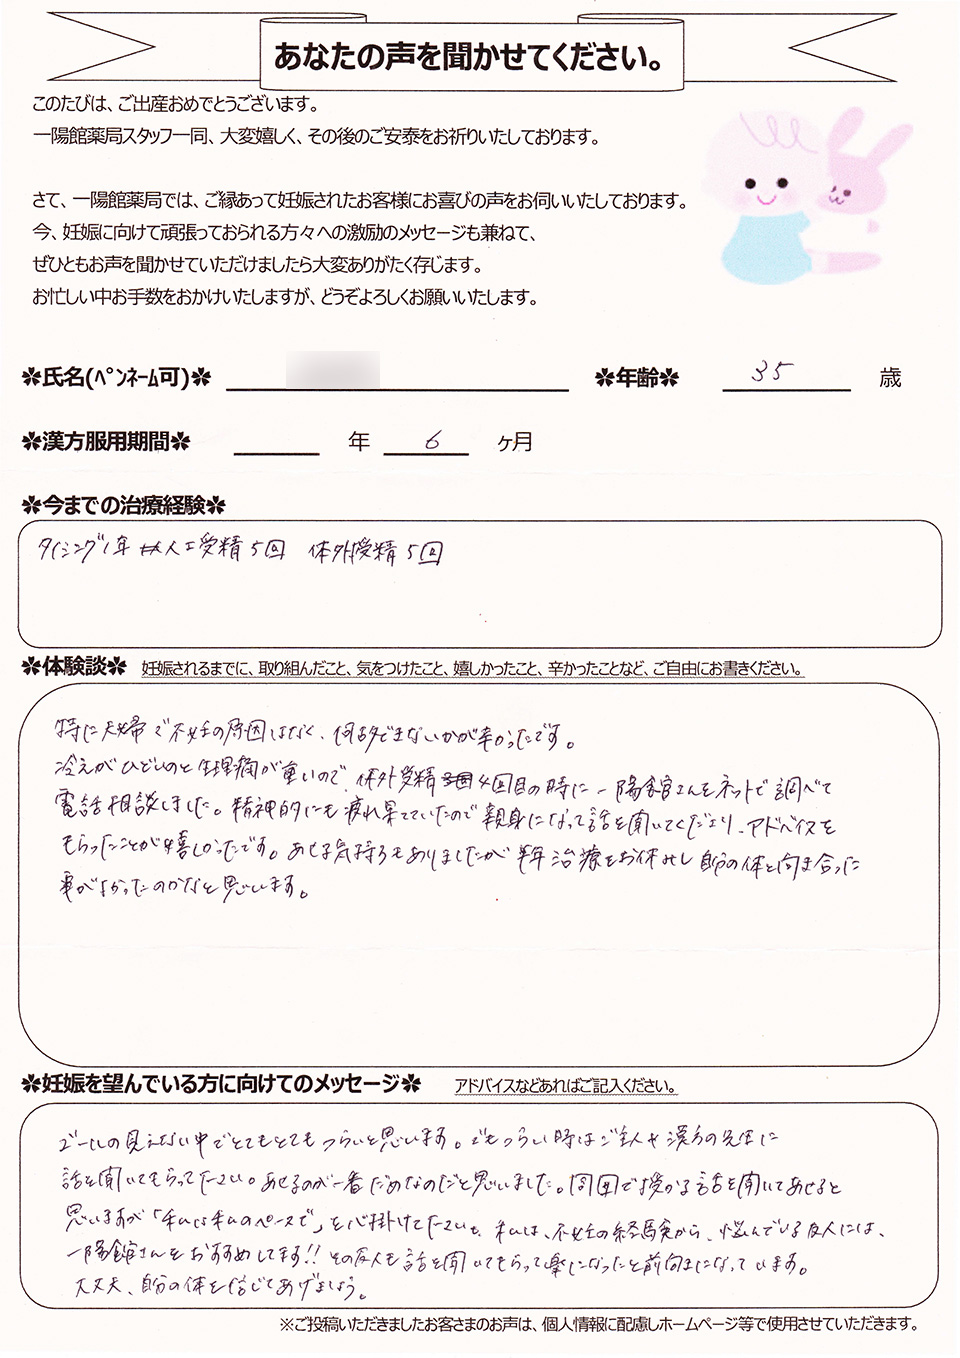 あなたの声を聞かせてください。
このたびは、ご出産おめでとうございます。
一陽館薬局スタッフ一同、大変嬉しく、その後のご安泰をお祈りいたしております。
さて、一陽館薬局では、ご縁あって妊娠されたお客様にお喜びの声をお伺いいたしております。
今、妊娠に向けて頑張っておられる方々への激励のメッセージも兼ねて、
ぜひともお声を聞かせていただけましたら大変ありがたく存じます。
お忙しい中お手数をおかけいたしますが、どうぞよろしくお願いいたします。
✽氏名(ﾍﾟﾝﾈｰﾑ可)✽ ✽年齢✽ 35 歳
✽漢方服用期間✽ 年 6 ヶ月
✽今までの治療経験✽
タイミング1年 人工受精5回 体外受精5回
✽体験談✽ 妊娠されるまでに、取り組んだこと、気をつけたこと、嬉しかったこと、辛かったことなど、ご自由にお書きください。
特に夫婦で不妊の原因はなく、何故できないかが辛かったです。
冷えがひどいのと生理痛が重いので、体外受精4回目の時に一陽館さんをネットで調べて
電話相談しました。精神的にも疲れ果てていたので親身になって話を聞いてくださり、アドバイスを
もらったことが嬉しかったです。あせる気持ちもありましたが半年治療をお休みし自分の体と向き合った
事がよかったのかなと思います。
✽妊娠を望んでいる方に向けてのメッセージ✽ アドバイスなどあればご記入ください。
ゴールの見えない中でとてもとてもつらいと思います。でもつらい時はご主人や漢方の先生に
話を聞いてもらって下さい。あせるのが一番だめなのだと思いました。周囲で授かる話を聞いてあせると
思いますが「私は私のペースで」を心掛けて下さい。私は、不妊の経験から、悩んでいる友人には、
一陽館さんをおすすめしてます!! その友人も話を聞いてもらって楽になったと前向きになっています。
大丈夫、自分の体を信じてあげましょう。
※ご投稿いただきましたお客さまのお声は、個人情報に配慮しホームページ等で使用させていただきます。